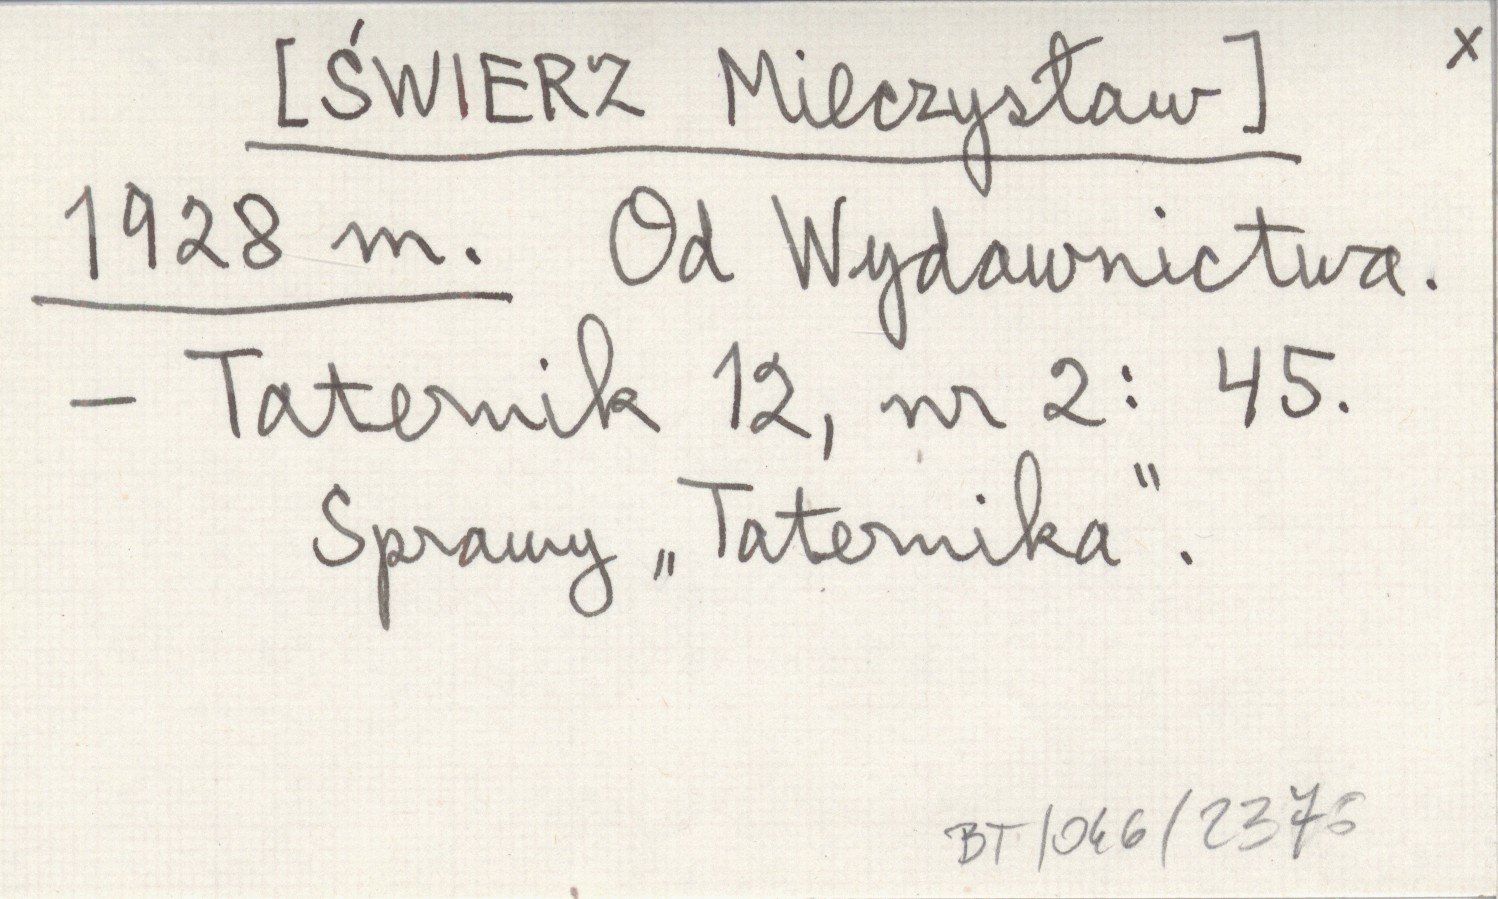 [ŚWIERZ Mieczysław] x
1928 m. Od Wydawnictwa.
- Taternik 12, nr 2: 45.
Sprawy „Taternika".
BT/046/2376